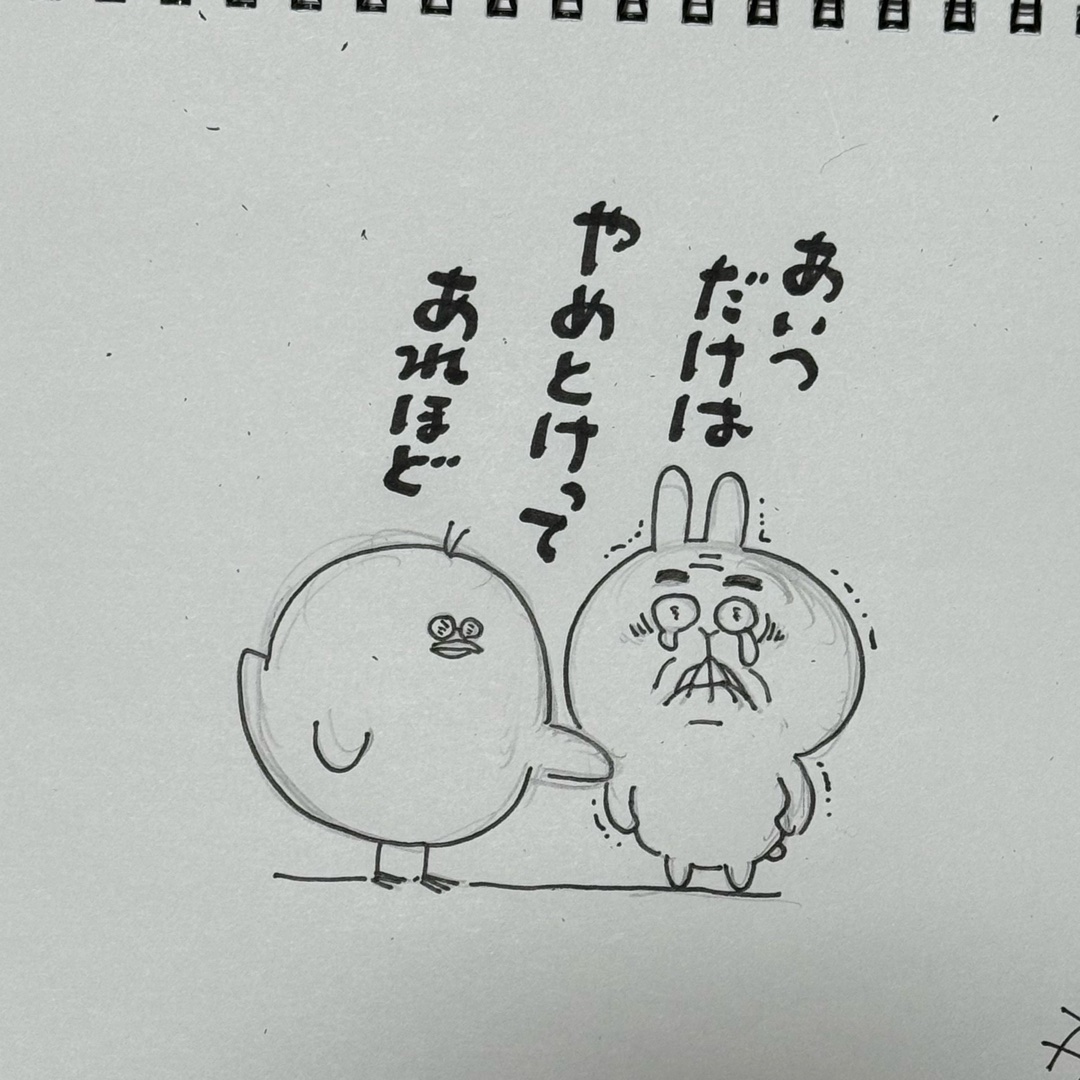 あいつ
だけは
やめとけって
あれほど